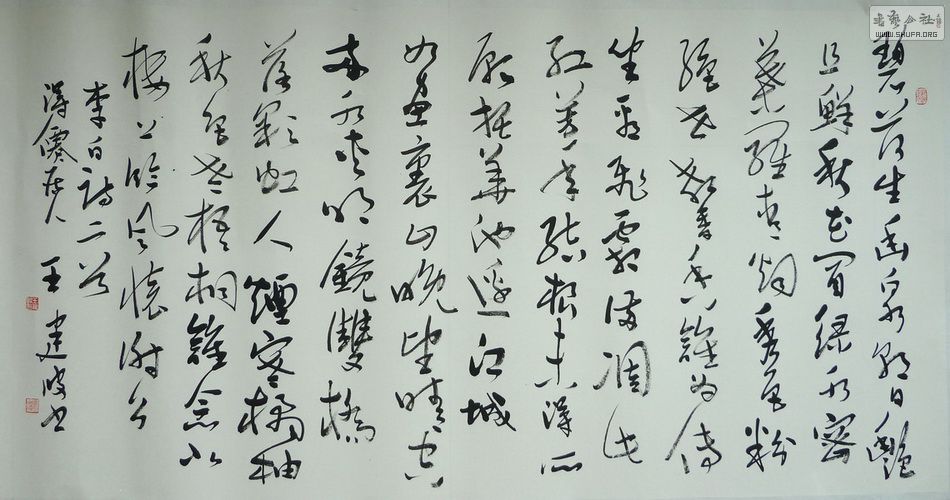 碧荷生幽泉朝日艷
且鮮秋花冒綠水密
葉羅青烟秀色粉
絕世馨香誰為傳
坐看飛霜滿凋此
紅芳年結根未得所
願托華池邊江城
如畫裏山晚望晴空
兩水夾明鏡雙橋
落彩虹人煙寒橘柚
秋色老梧桐誰念北
樓上臨風懷謝公
李白詩二首
得僊居人王建波书
WWW.SHUFA.ORG